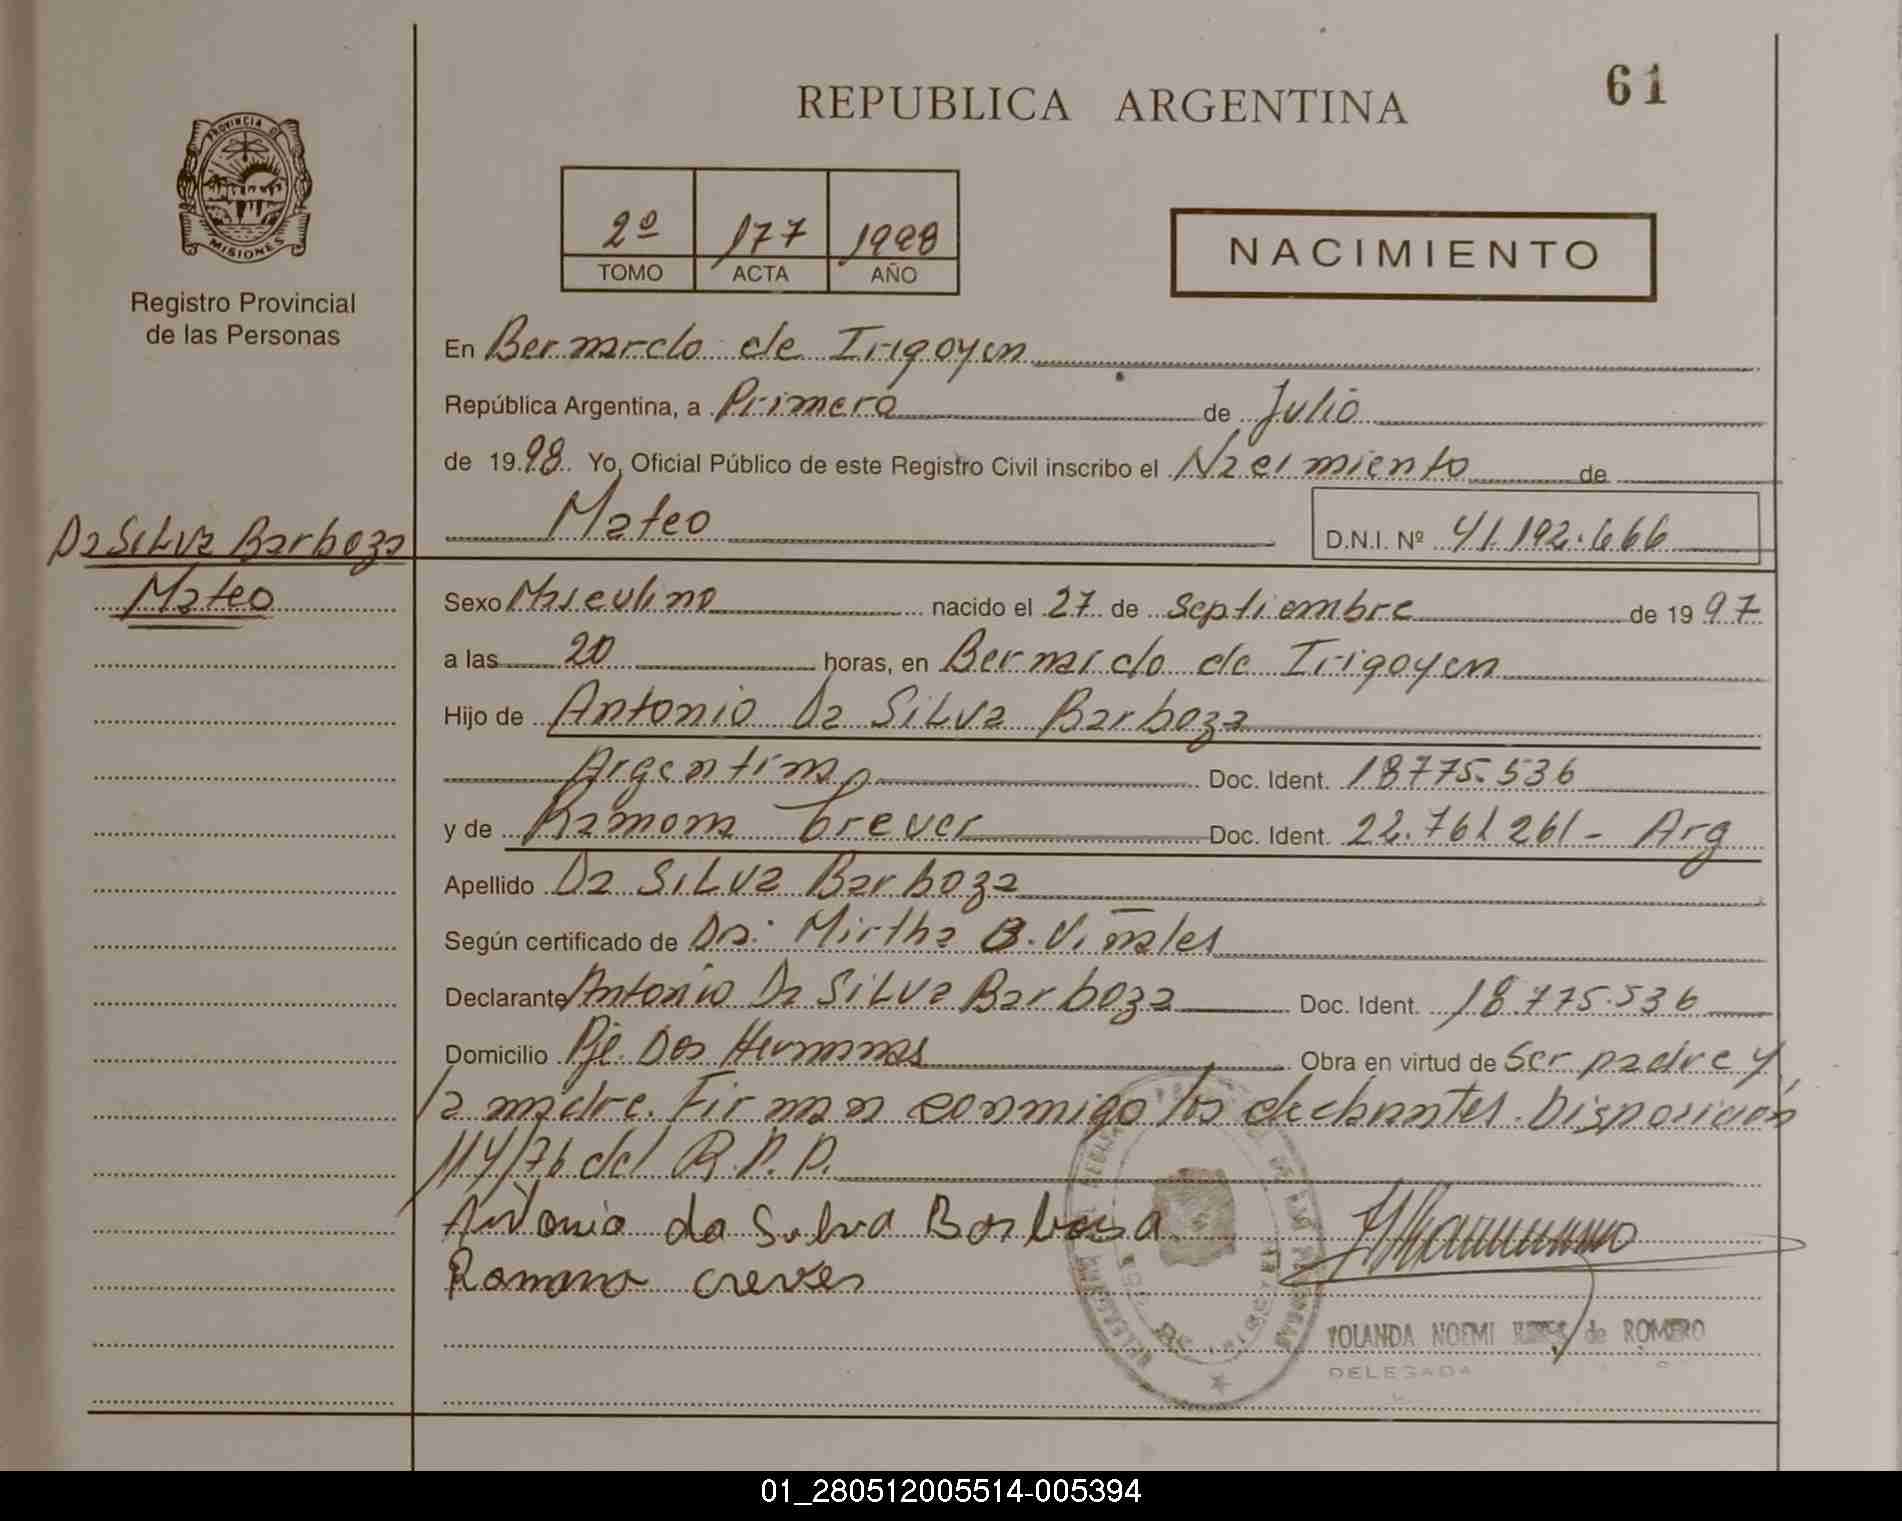 REPUBLICA ARGENTINA
61
PROVINCIA DE
MISIONES
Registro Provincial
de las Personas
2º 177 1998
TOMO ACTA AÑO
NACIMIENTO
En Bernardo de Irigoyen
República Argentina, a Primero de Julio
de 1998 Yo, Oficial Público de este Registro Civil inscribo el Nacimiento de
Mateo
D.N.I. Nº 41.192.666
Da Silva Barboza
Mateo
Sexo Masculino nacido el 27 de Septiembre de 1997
a las 20 horas, en Bernardo de Irigoyen
Hijo de Antonio Da Silva Barboza
Argentino Doc. Ident. 18775.536
y de Ramona Doc. Ident. 22.761261- Arg
Apellido Da Silva Barboza
Según certificado de Dra: Mirtha B. Viñales
Declarante Antonio Da Silva Barboza Doc. Ident. 18.775.536
Domicilio Pje. Dos Hermanas Obra en virtud de Ser padre y
la madre. Firman conmigo los declarantes. Disposición
114/76 del R.P.P.
Antonio da Silva Barboza
Ramona
YOLANDA NOEMI de ROMERO
DELEGADA
01_280512005514-005394